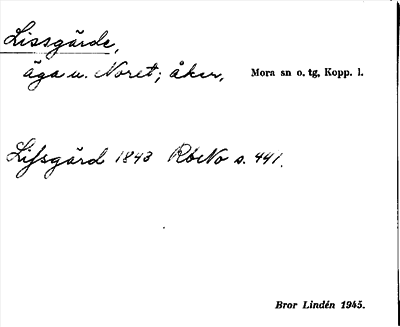 Lissgärde,
äga u. Noret; åker,
Mora sn o. tg, Kopp. l.
Lissgärd 1843 RbNo s. 441.
Bror Lindén 1945.